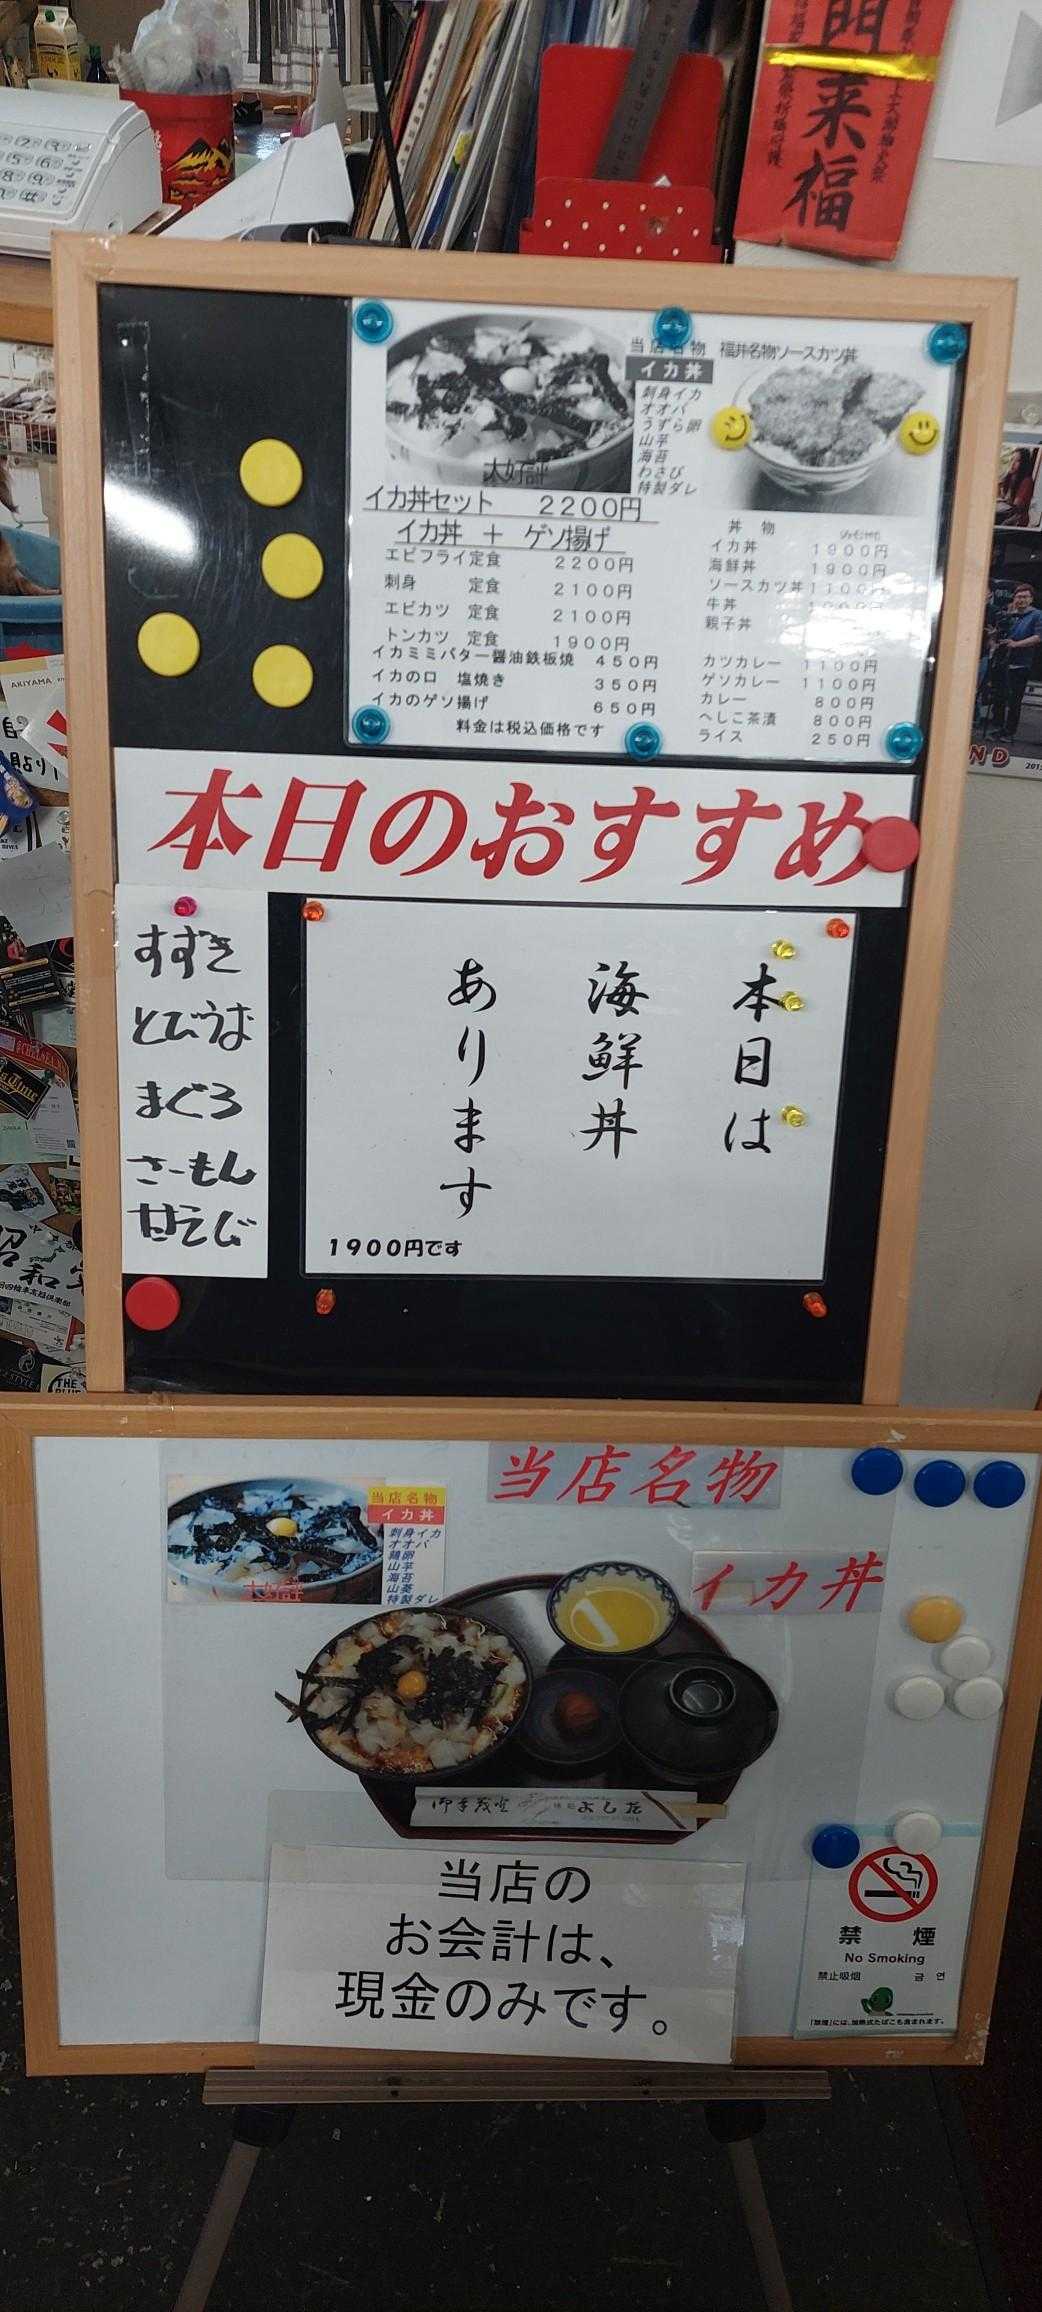 門来福
当店名物 福井名物ソースカツ丼
イカ丼
刺身イカ
オオバ
うずら卵
山芋
海苔
わさび
特製ダレ
大好評
イカ丼セット 2200円
イカ丼 + ゲソ揚げ
エビフライ定食 2200円
刺身 定食 2100円
エビカツ 定食 2100円
トンカツ 定食 1900円
イカミミバター醤油鉄板焼 450円
イカの口 塩焼き 350円
イカのゲソ揚げ 650円
料金は税込価格です
丼 物
イカ丼 1900円
海鮮丼 1900円
ソースカツ丼 1100円
牛丼
親子丼
カツカレー 1100円
ゲソカレー 1100円
カレー 800円
へしこ茶漬 800円
ライス 250円
本日のおすすめ
すずき
とびうお
まぐろ
さーもん
甘えび
本日は
海鮮丼
あります
1900円です
当店名物
イカ丼
当店名物
イカ丼
刺身イカ
オオバ
鶉卵
山芋
海苔
山葵
特製ダレ
大好評
御手茂登
よした
当店の
お会計は、
現金のみです。
禁煙
No Smoking
禁止吸烟 금연
「禁煙」には、加熱式たばこも含まれます。
AKIYAMA
昭和
THE
ND